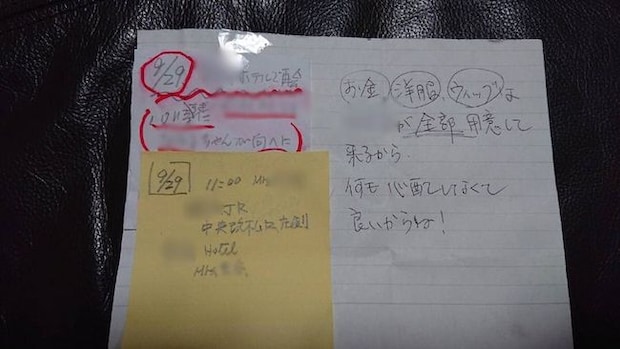 9/29
ホテルで再会
ちゃんが向へに
9/29
11=00 MR
JR
中央改札口左側
Hotel
MR
お金 洋服、ウィッグは
が全部用意して
来るから
何も心配しなくて
良いからね!